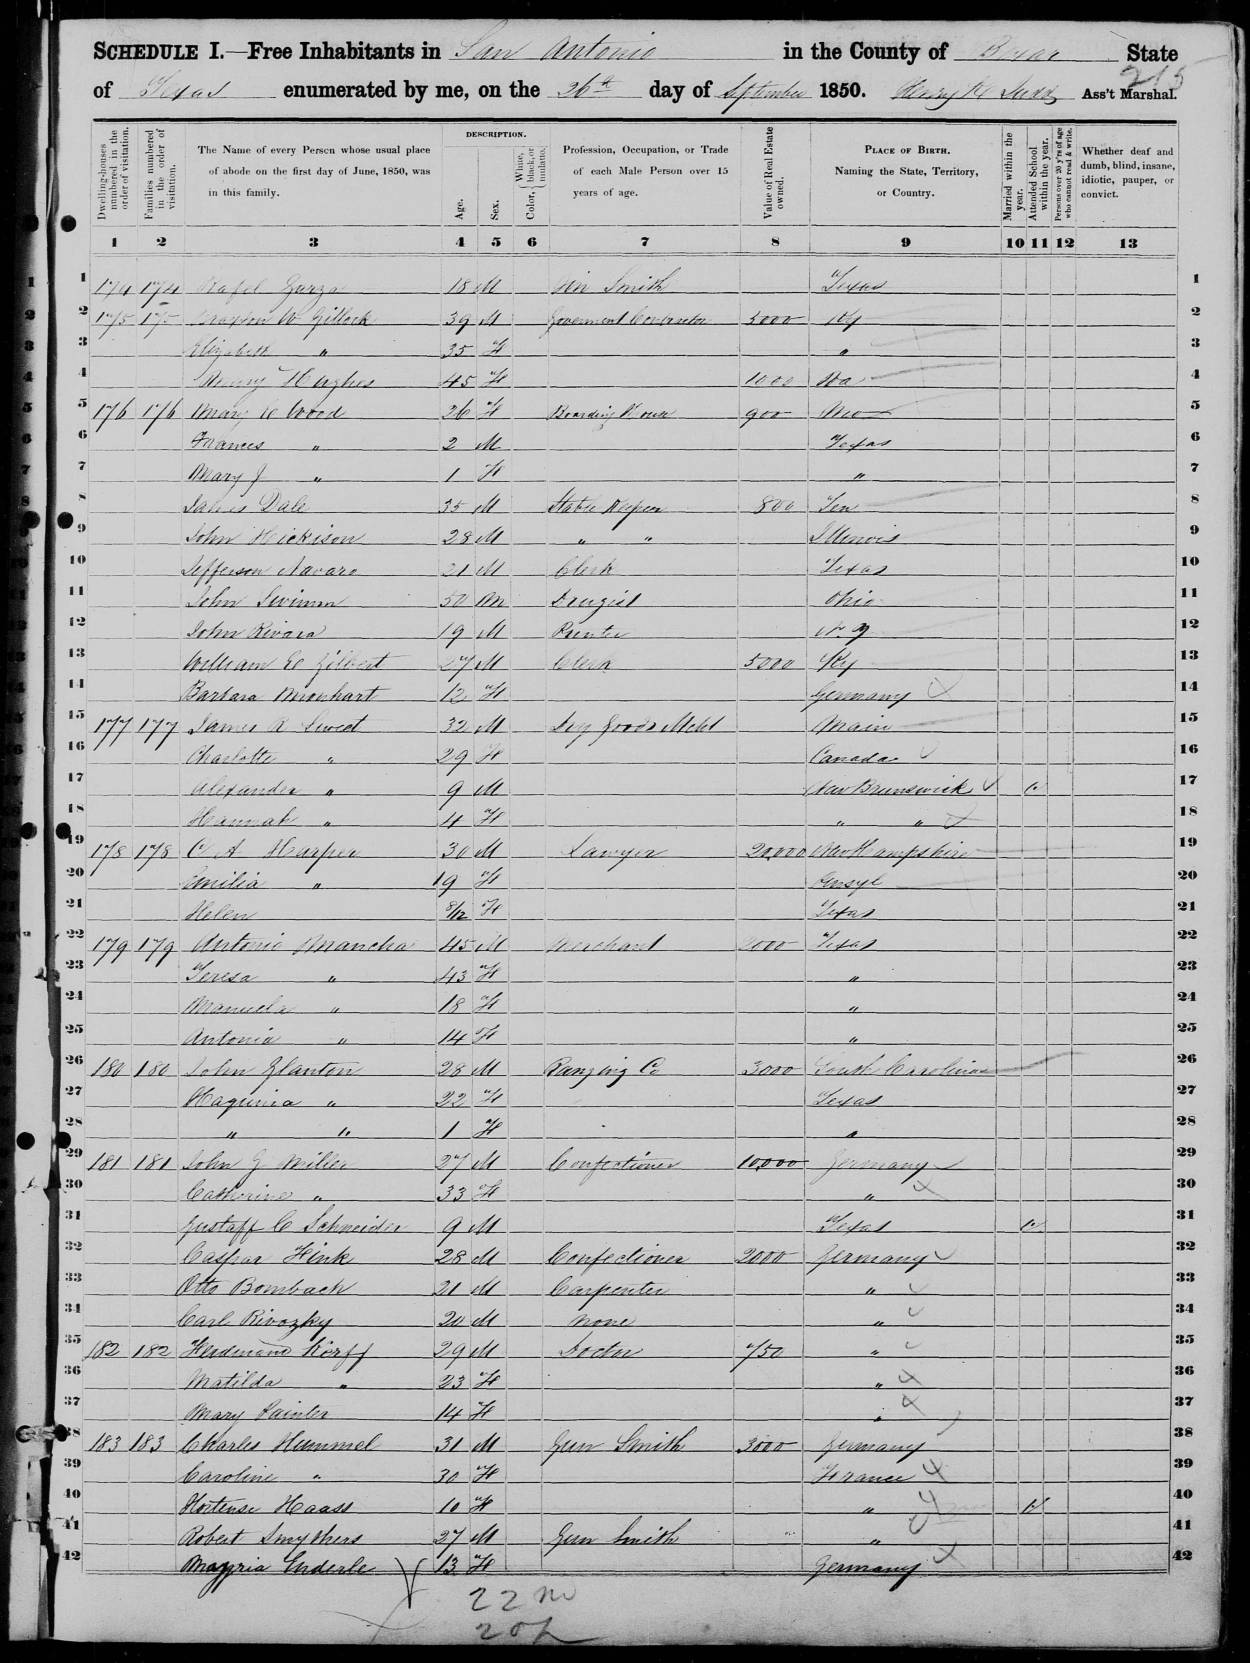 SCHEDULE I.—Free Inhabitants in San Antonio in the County of Bexar State
of Texas enumerated by me, on the 26th day of September 1850. Henry K Judd Ass't Marshal.
215
Dwelling-houses numbered in the order of visitation. Families numbered in the order of visitation. The Name of every Person whose usual place of abode on the first day of June, 1850, was in this family. DESCRIPTION. Age. Sex. Color, White, black, or mulatto. Profession, Occupation, or Trade of each Male Person over 15 years of age. Value of Real Estate owned. PLACE OF BIRTH. Naming the State, Territory, or Country. Married within the year. Attended School within the year. Persons over 20 y'rs of age who cannot read & write. Whether deaf and dumb, blind, insane, idiotic, pauper, or convict.
1 2 3 4 5 6 7 8 9 10 11 12 13
1 174 174 Rafel Garza 18 M Smith Texas 1
2 175 175 W Gillock 39 M Goverment Contractor 5000 Ky 2
3 Elizabeth " 35 F " 3
4 Hughes 45 F 1000 4
5 176 176 Mary Wood 26 F Boarding House 900 Mo 5
6 Frances " 2 M Texas 6
7 Mary J " 1 F " 7
8 James Dale 35 M Stable Keeper 800 Ten 8
9 John Hickison 28 M " " Illinois 9
10 Jefferson Navaro 21 M Clerk Texas 10
11 John 50 M Drugist Ohio 11
12 John Rivara 19 M N. Y 12
13 William E Gilbert 27 M Clerk 5000 Ky 13
14 Barbara 12 F Germany 14
15 177 177 James R Sweet 32 M Dry Goods Mcht Main 15
16 Charlotte " 29 F Canada 16
17 Alexander " 9 M New Brunswick 17
18 Hannah " 4 F " " 18
19 178 178 C A Harper 30 M Lawyer 20,000 New Hampshire 19
20 Emilia " 19 F Pensyl 20
21 Helen 8/12 F Texas 21
22 179 179 Antonio Mancha 45 M Merchant Texas 22
23 Teresa " 43 F " 23
24 Manuela " 18 F " 24
25 Antonia " 14 F " 25
26 180 180 John Glanton 28 M Ranging Co 3000 South Carolina 26
27 " 22 F Texas 27
28 " " 1 F " 28
29 181 181 John G Miller 27 M Confectioner 10,000 Germany 29
30 Catherine " 33 F " 30
31 Gustaff C Schneider 9 M Texas 31
32 Caspar Fink 28 M Confectioner 2000 Germany 32
33 Otto Bombach 21 M Carpenter " 33
34 Carl Rivozky 20 M None " 34
35 182 182 Ferdinand Herff 29 M Doctor 750 " 35
36 Matilda " 23 F " 36
37 Mary Painter 14 F " 37
38 183 183 Charles Hummel 31 M Gun Smith 3000 Germany 38
39 Caroline " 30 F France 39
40 Hortense Haass 10 F " 40
41 Robert Smythers 27 M Gun Smith " 41
42 Enderle 13 F Germany 42
22 m
20